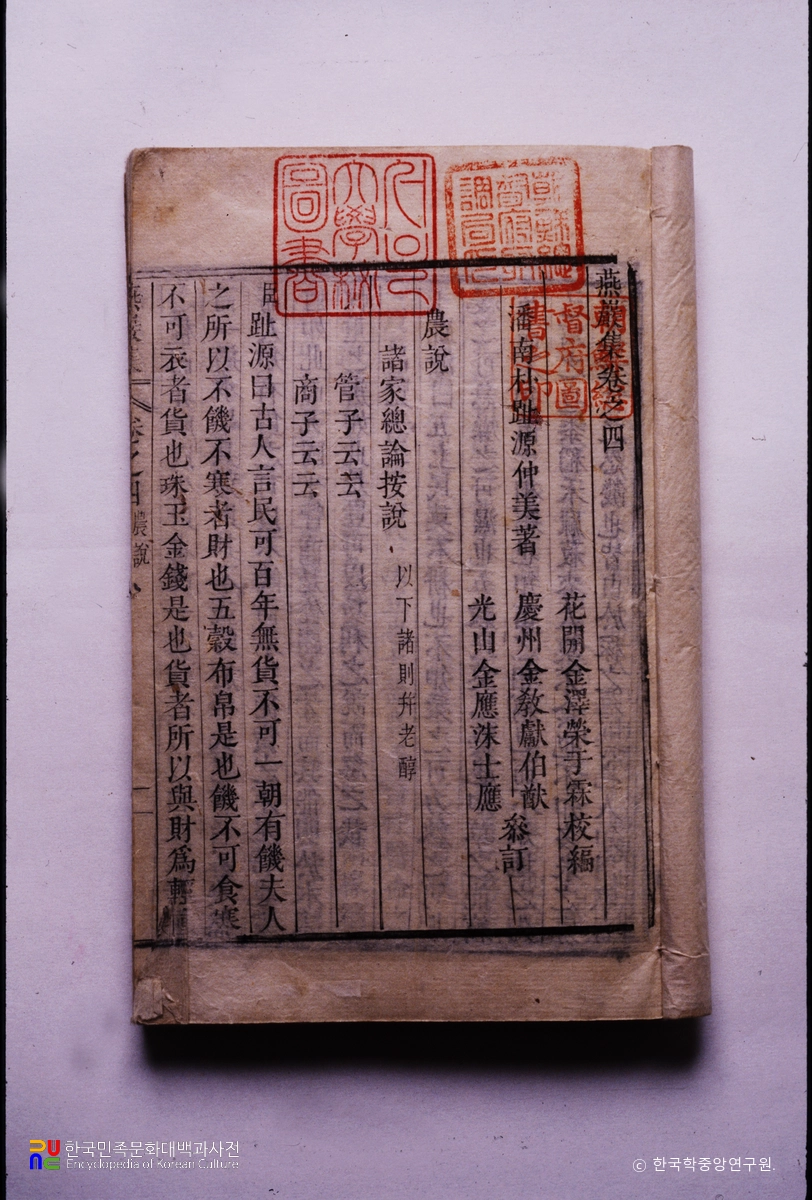 燕巖集卷之四
花開金澤榮于霖校編
潘南朴趾源仲美著 慶州金敎獻伯猷 叅訂
光山金應洙士應
農說
諸家總論按說 以下諸則幷老醇
管子云云
商子云云
臣趾源曰古人言民可百年無貨不可一朝有饑夫人
之所以不饑不寒者財也五穀布帛是也饑不可食寒
不可衣者貨也珠玉金錢是也貨者所以與財爲輕
農說
圖書
大學校
督府圖
書之印
한국민족문화대백과사전
Encyclopedia of Korean Culture
© 한국학중앙연구원.